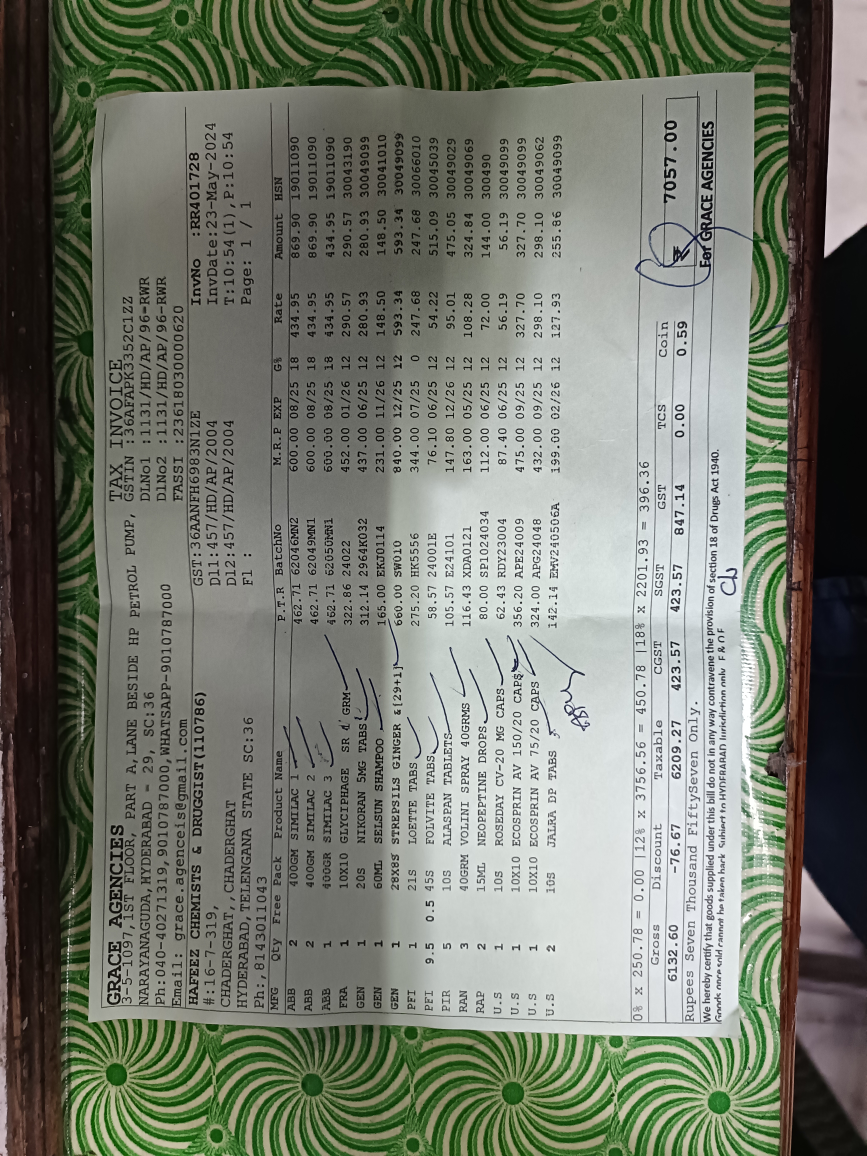 GRACE AGENCIES TAX INVOICE
3-5-1097,1ST FLOOR, PART A,LANE BESIDE HP PETROL PUMP, GSTIN :36AFAPK3352C1ZZ
NARAYANAGUDA,HYDERABAD - 29, SC:36 DLNo1 :1131/HD/AP/96-RWR
Ph:040-40271319,9010787000,WHATSAPP-9010787000 DlNo2 :1131/HD/AP/96-RWR
Email: grace.agenceis@gmail.com FASSI :23618030000620
HAFEEZ CHEMISTS & DRUGGIST(110786) GST:36AANFH6983N1ZE InvNo :RR401728
#:16-7-319, Dl1:457/HD/AP/2004 InvDate:23-May-2024
CHADERGHAT,,CHADERGHAT Dl2:457/HD/AP/2004 T:10:54(1),P:10:54
HYDERABAD,TELENGANA STATE SC:36 Fl : Page: 1 / 1
Ph:,8143011043
MFG Qty Free Pack Product Name P.T.R BatchNo M.R.P EXP G% Rate Amount HSN
ABB 2 400GM SIMILAC 1 462.71 62046MN2 600.00 08/25 18 434.95 869.90 19011090
ABB 2 400GM SIMILAC 2 462.71 62049MN1 600.00 08/25 18 434.95 869.90 19011090
ABB 1 400GR SIMILAC 3 462.71 62050MN1 600.00 08/25 18 434.95 434.95 19011090
FRA 1 10X10 GLYCIPHAGE SR GRM 322.86 24022 452.00 01/26 12 290.57 290.57 30043190
GEN 1 20S NIKORAN 5MG TABS 312.14 2964K032 437.00 06/25 12 280.93 280.93 30049099
GEN 1 60ML SELSUN SHAMPOO 165.00 EKJ0114 231.00 11/26 12 148.50 148.50 30041010
GEN 1 28X8S STREPSILS GINGER &[29+1] 660.00 SW010 840.00 12/25 12 593.34 593.34 30049099
PFI 1 21S LOETTE TABS 275.20 HK5556 344.00 07/25 0 247.68 247.68 30066010
PFI 9.5 0.5 45S FOLVITE TABS 58.57 24001E 76.10 06/25 12 54.22 515.09 30045039
PIR 5 10S ALASPAN TABLETS 105.57 E24101 147.80 12/26 12 95.01 475.05 30049029
RAN 3 40GRM VOLINI SPRAY 40GRMS 116.43 XDA0121 163.00 05/25 12 108.28 324.84 30049069
RAP 2 15ML NEOPEPTINE DROPS 80.00 SP1024034 112.00 06/25 12 72.00 144.00 300490
U.S 1 10S ROSEDAY CV-20 MG CAPS 62.43 RDY23004 87.40 06/25 12 56.19 56.19 30049099
U.S 1 10X10 ECOSPRIN AV 150/20 CAPS 356.20 APE24009 475.00 09/25 12 327.70 327.70 30049099
U.S 1 10X10 ECOSPRIN AV 75/20 CAPS 324.00 APG24048 432.00 09/25 12 298.10 298.10 30049062
U.S 2 10S JALRA DP TABS 142.14 EMV240506A 199.00 02/26 12 127.93 255.86 30049099
0% x 250.78 = 0.00 |12% x 3756.56 = 450.78 |18% x 2201.93 = 396.36
Gross Discount Taxable CGST SGST GST TCS Coin
6132.60 -76.67 6209.27 423.57 423.57 847.14 0.00 0.59 ₹ 7057.00
Rupees Seven Thousand FiftySeven Only.
We hereby certify that goods supplied under this bill do not in any way contravene the provision of section 18 of Drugs Act 1940. For GRACE AGENCIES
Goods once sold cannot be taken back. Subject to HYDERABAD Jurisdiction only. E & O E